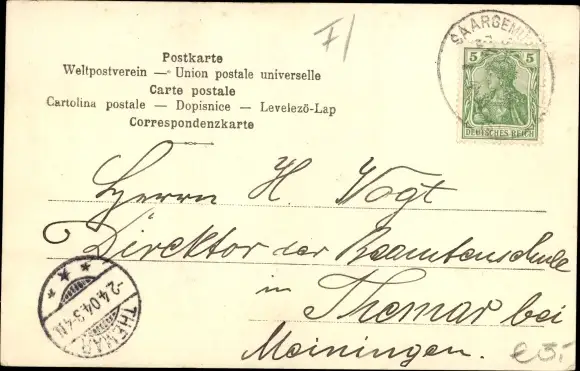 F/
Postkarte
Weltpostverein — Union postale universelle
Carte postale
Cartolina postale — Dopisnice — Levelező-Lap
Correspondenzkarte
SAARGEMÜ
5 5
DEUTSCHES REICH
Herrn H. Vogt
Direktor der Beamtenschule
in Themar bei
Meiningen.
-2.4.04.3-4N.
THEMAR
€3,-